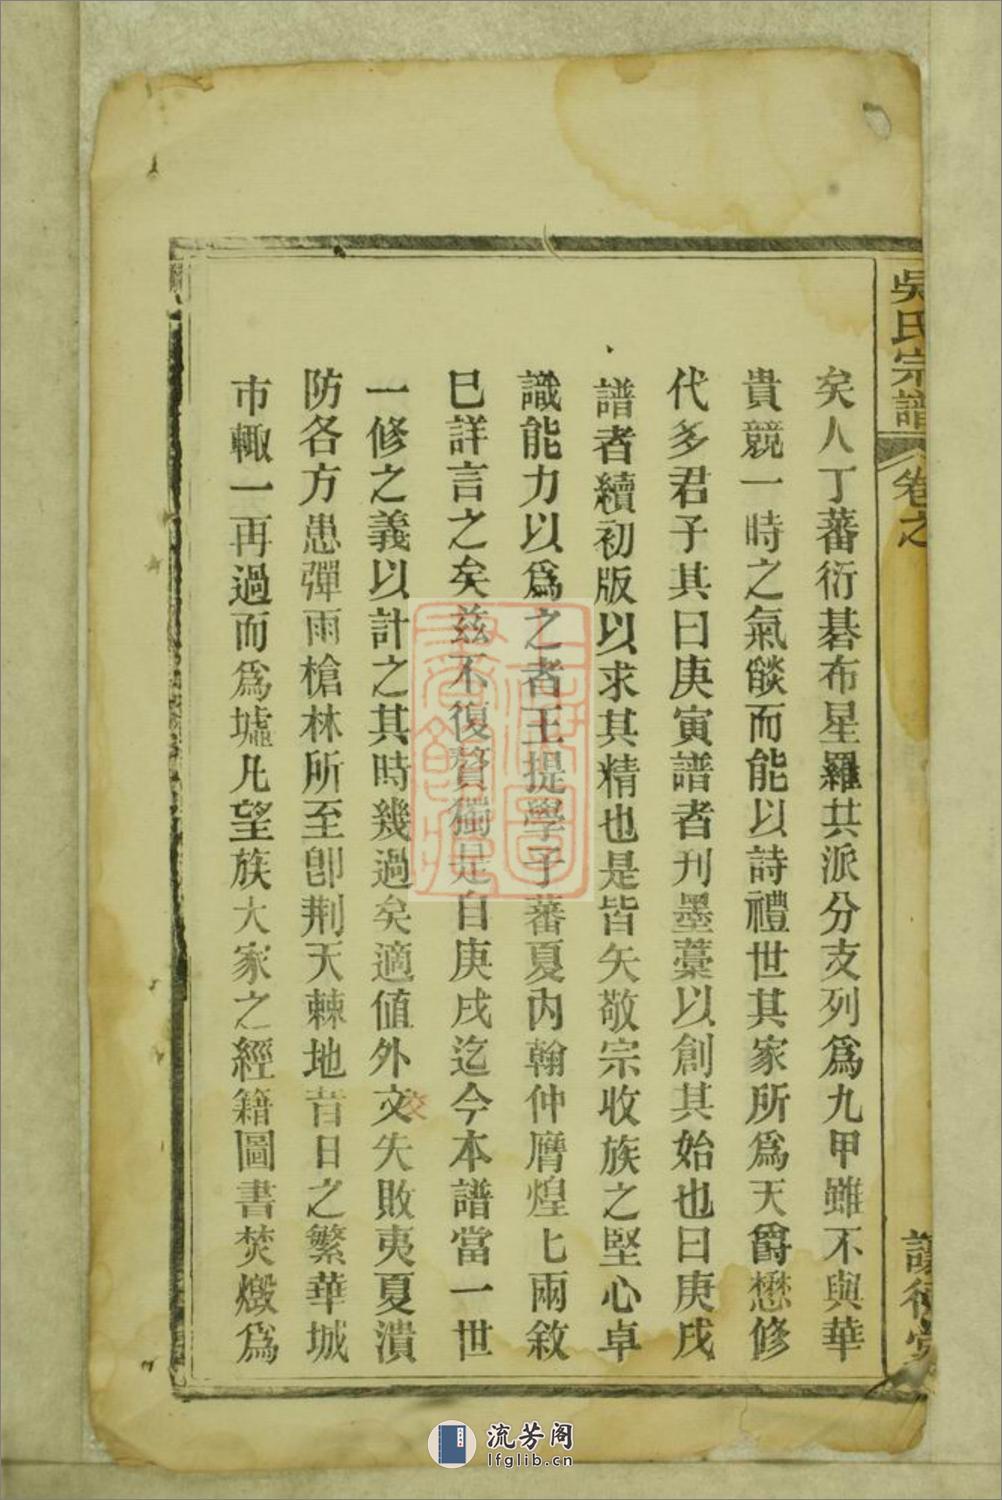 吳氏宗譜 卷之
矣人丁蕃衍碁布星羅共派分支列爲九甲雖不與華
貴競一時之氣燄而能以詩禮世其家所爲天爵懋修
代多君子其曰庚寅譜者刊墨藁以創其始也曰庚戌
譜者續初版以求其精也是皆矢敬宗收族之堅心卓
識能力以爲之者王提學子蕃夏內翰仲膺煌七兩敘
巳詳言之矣茲不復贅獨是自庚戌迄今本譜當一世
一修之義以計之其時幾過矣適値外交失敗夷夏潰
防各方患彈雨槍林所至卽荆天棘地昔日之繁華城
市輙一再過而爲墟凡望族大家之經籍圖書焚燬爲
流芳阁
lfglib.cn